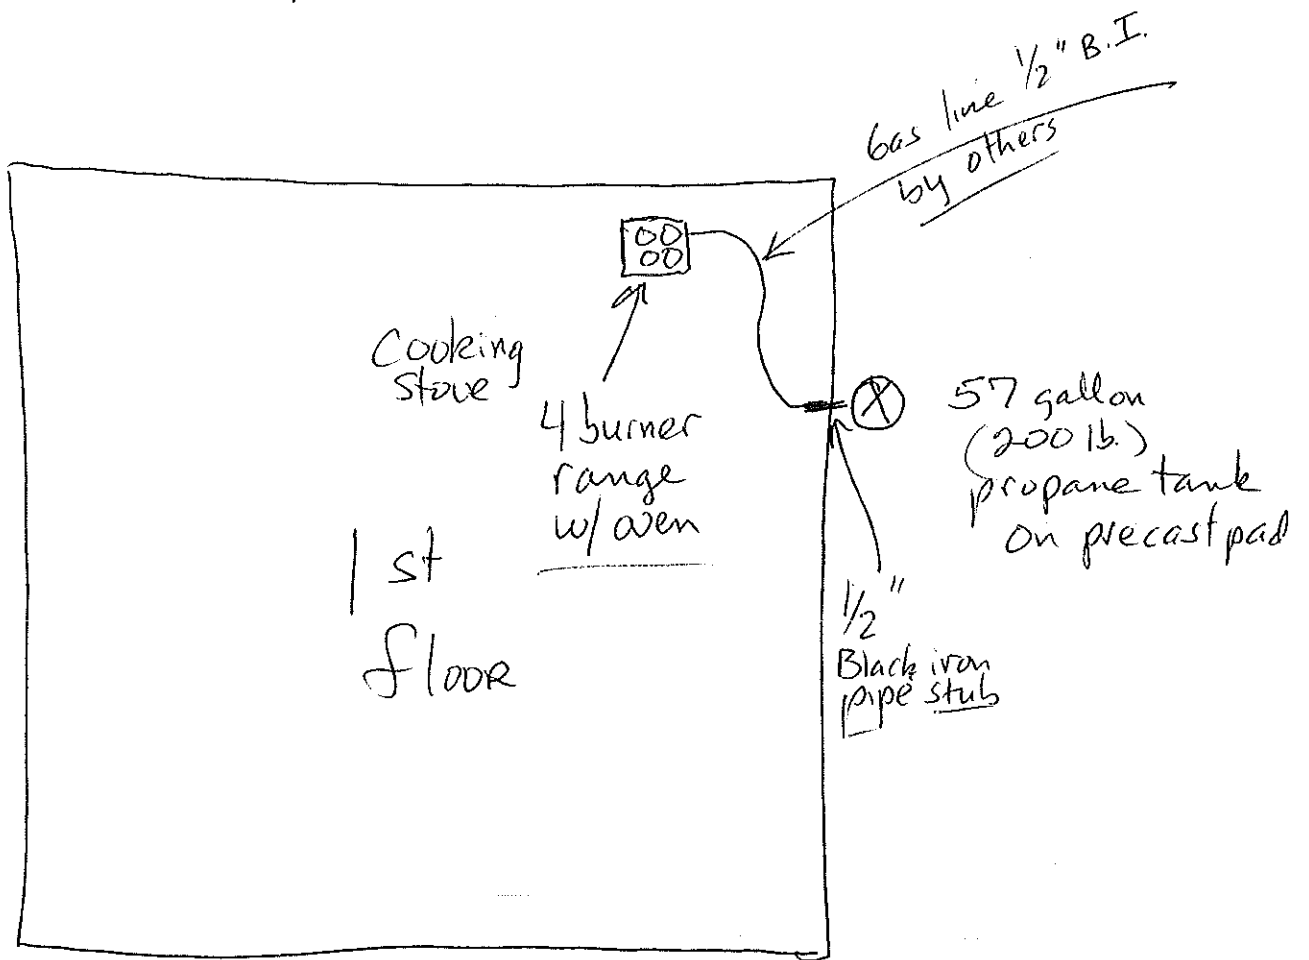 Gas line 1/2" B.I.
by others
Cooking
stove
4 burner
range
w/ oven
57 gallon
(200 lb.)
propane tank
on precast pad
1st
floor
1/2"
Black iron
pipe stub